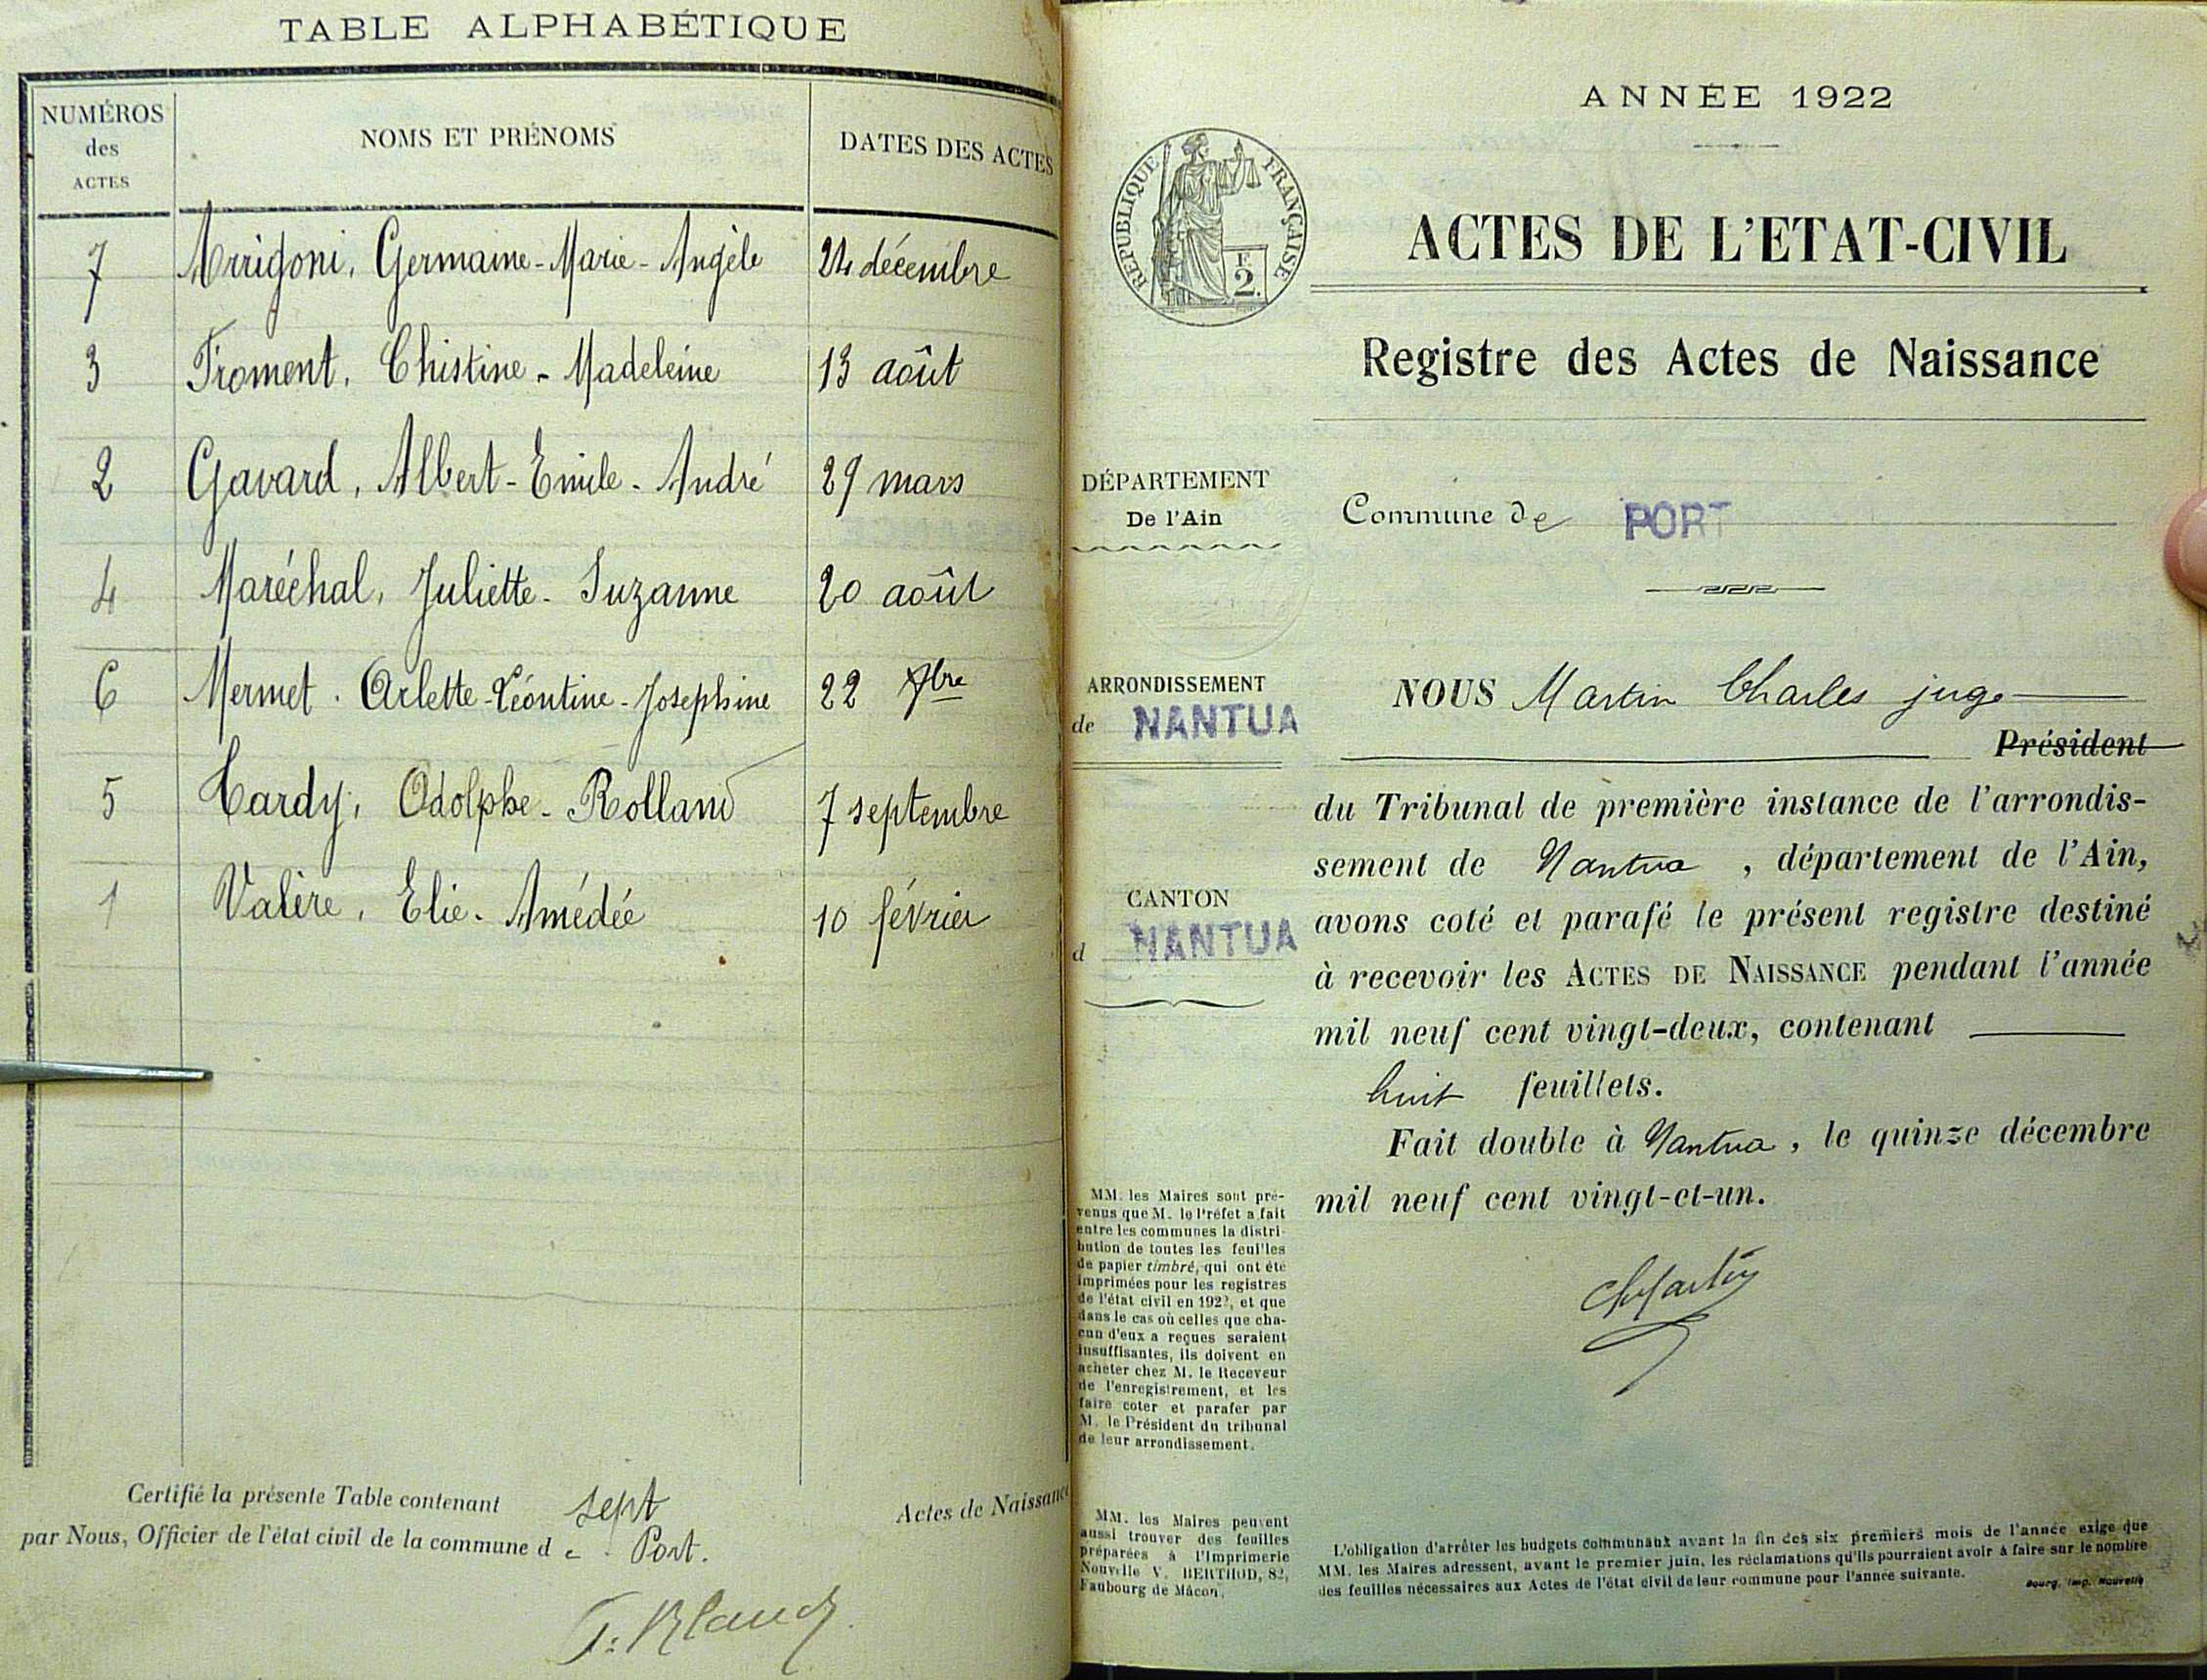 TABLE ALPHABÉTIQUE
NUMÉROS des ACTES
NOMS ET PRÉNOMS
DATES DES ACTES
7 Arrigoni, Germaine-Marie-Angèle 24 décembre
3 Froment, Chistine-Madeleine 13 août
2 Gavard, Albert-Emile-André 29 mars
4 Maréchal, Juliette-Suzanne 20 août
6 Mermet. Arlette-Léontine-Josephine 22 9bre
5 Tardy, Odolphe-Rolland 7 septembre
1 Valère, Elie-Amédée 10 février
Certifié la présente Table contenant sept Actes de Naissance
par Nous, Officier de l'état civil de la commune d e Port.
ANNÉE 1922
RÉPUBLIQUE FRANÇAISE
F.
2.
ACTES DE L'ETAT-CIVIL
Registre des Actes de Naissance
DÉPARTEMENT
De l'Ain
Commune de PORT
ARRONDISSEMENT
de NANTUA
CANTON
d NANTUA
NOUS Martin Charles juge
Président
du Tribunal de première instance de l'arrondis-
sement de Nantua, département de l'Ain,
avons coté et parafé le présent registre destiné
à recevoir les ACTES DE NAISSANCE pendant l'année
mil neuf cent vingt-deux, contenant
huit feuillets.
Fait double à Nantua, le quinze décembre
mil neuf cent vingt-et-un.
ChMartin
MM. les Maires sont pré-
venus que M. le Préfet a fait
entre les communes la distri-
bution de toutes les feuilles
de papier timbré, qui ont été
imprimées pour les registres
de l'état civil en 1922, et que
dans le cas où celles que cha-
cun d'eux a reçues seraient
insuffisantes, ils doivent en
acheter chez M. le Receveur
de l'enregistrement, et les
faire coter et parafer par
M. le Président du tribunal
de leur arrondissement.
MM. les Maires peuvent
aussi trouver des feuilles
préparées à l'Imprimerie
Nouvelle V. BERTHOD, 82,
Faubourg de Mâcon.
L'obligation d'arrêter les budgets communaux avant la fin des six premiers mois de l'année exige que
MM. les Maires adressent, avant le premier juin, les réclamations qu'ils pourraient avoir à faire sur le nombre
des feuilles nécessaires aux Actes de l'état civil de leur commune pour l'année suivante.
Bourg, Imp. Nouvelle